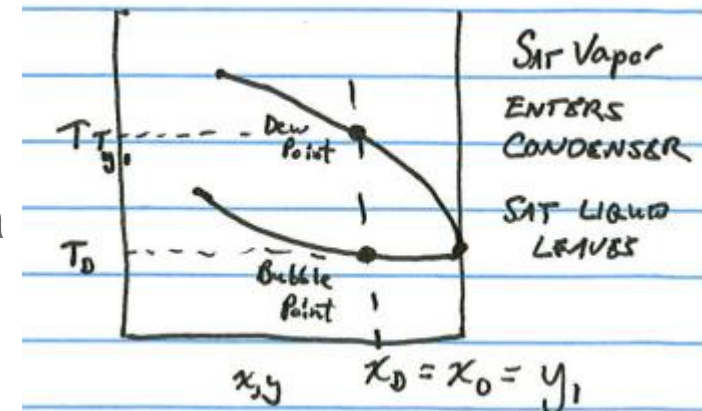 SAT Vapor
ENTERS
CONDENSER
SAT LIQUID
LEAVES
T
T_y₁
Dew
Point
T_D
Bubble
Point
x,y
x_D = x_0 = y₁